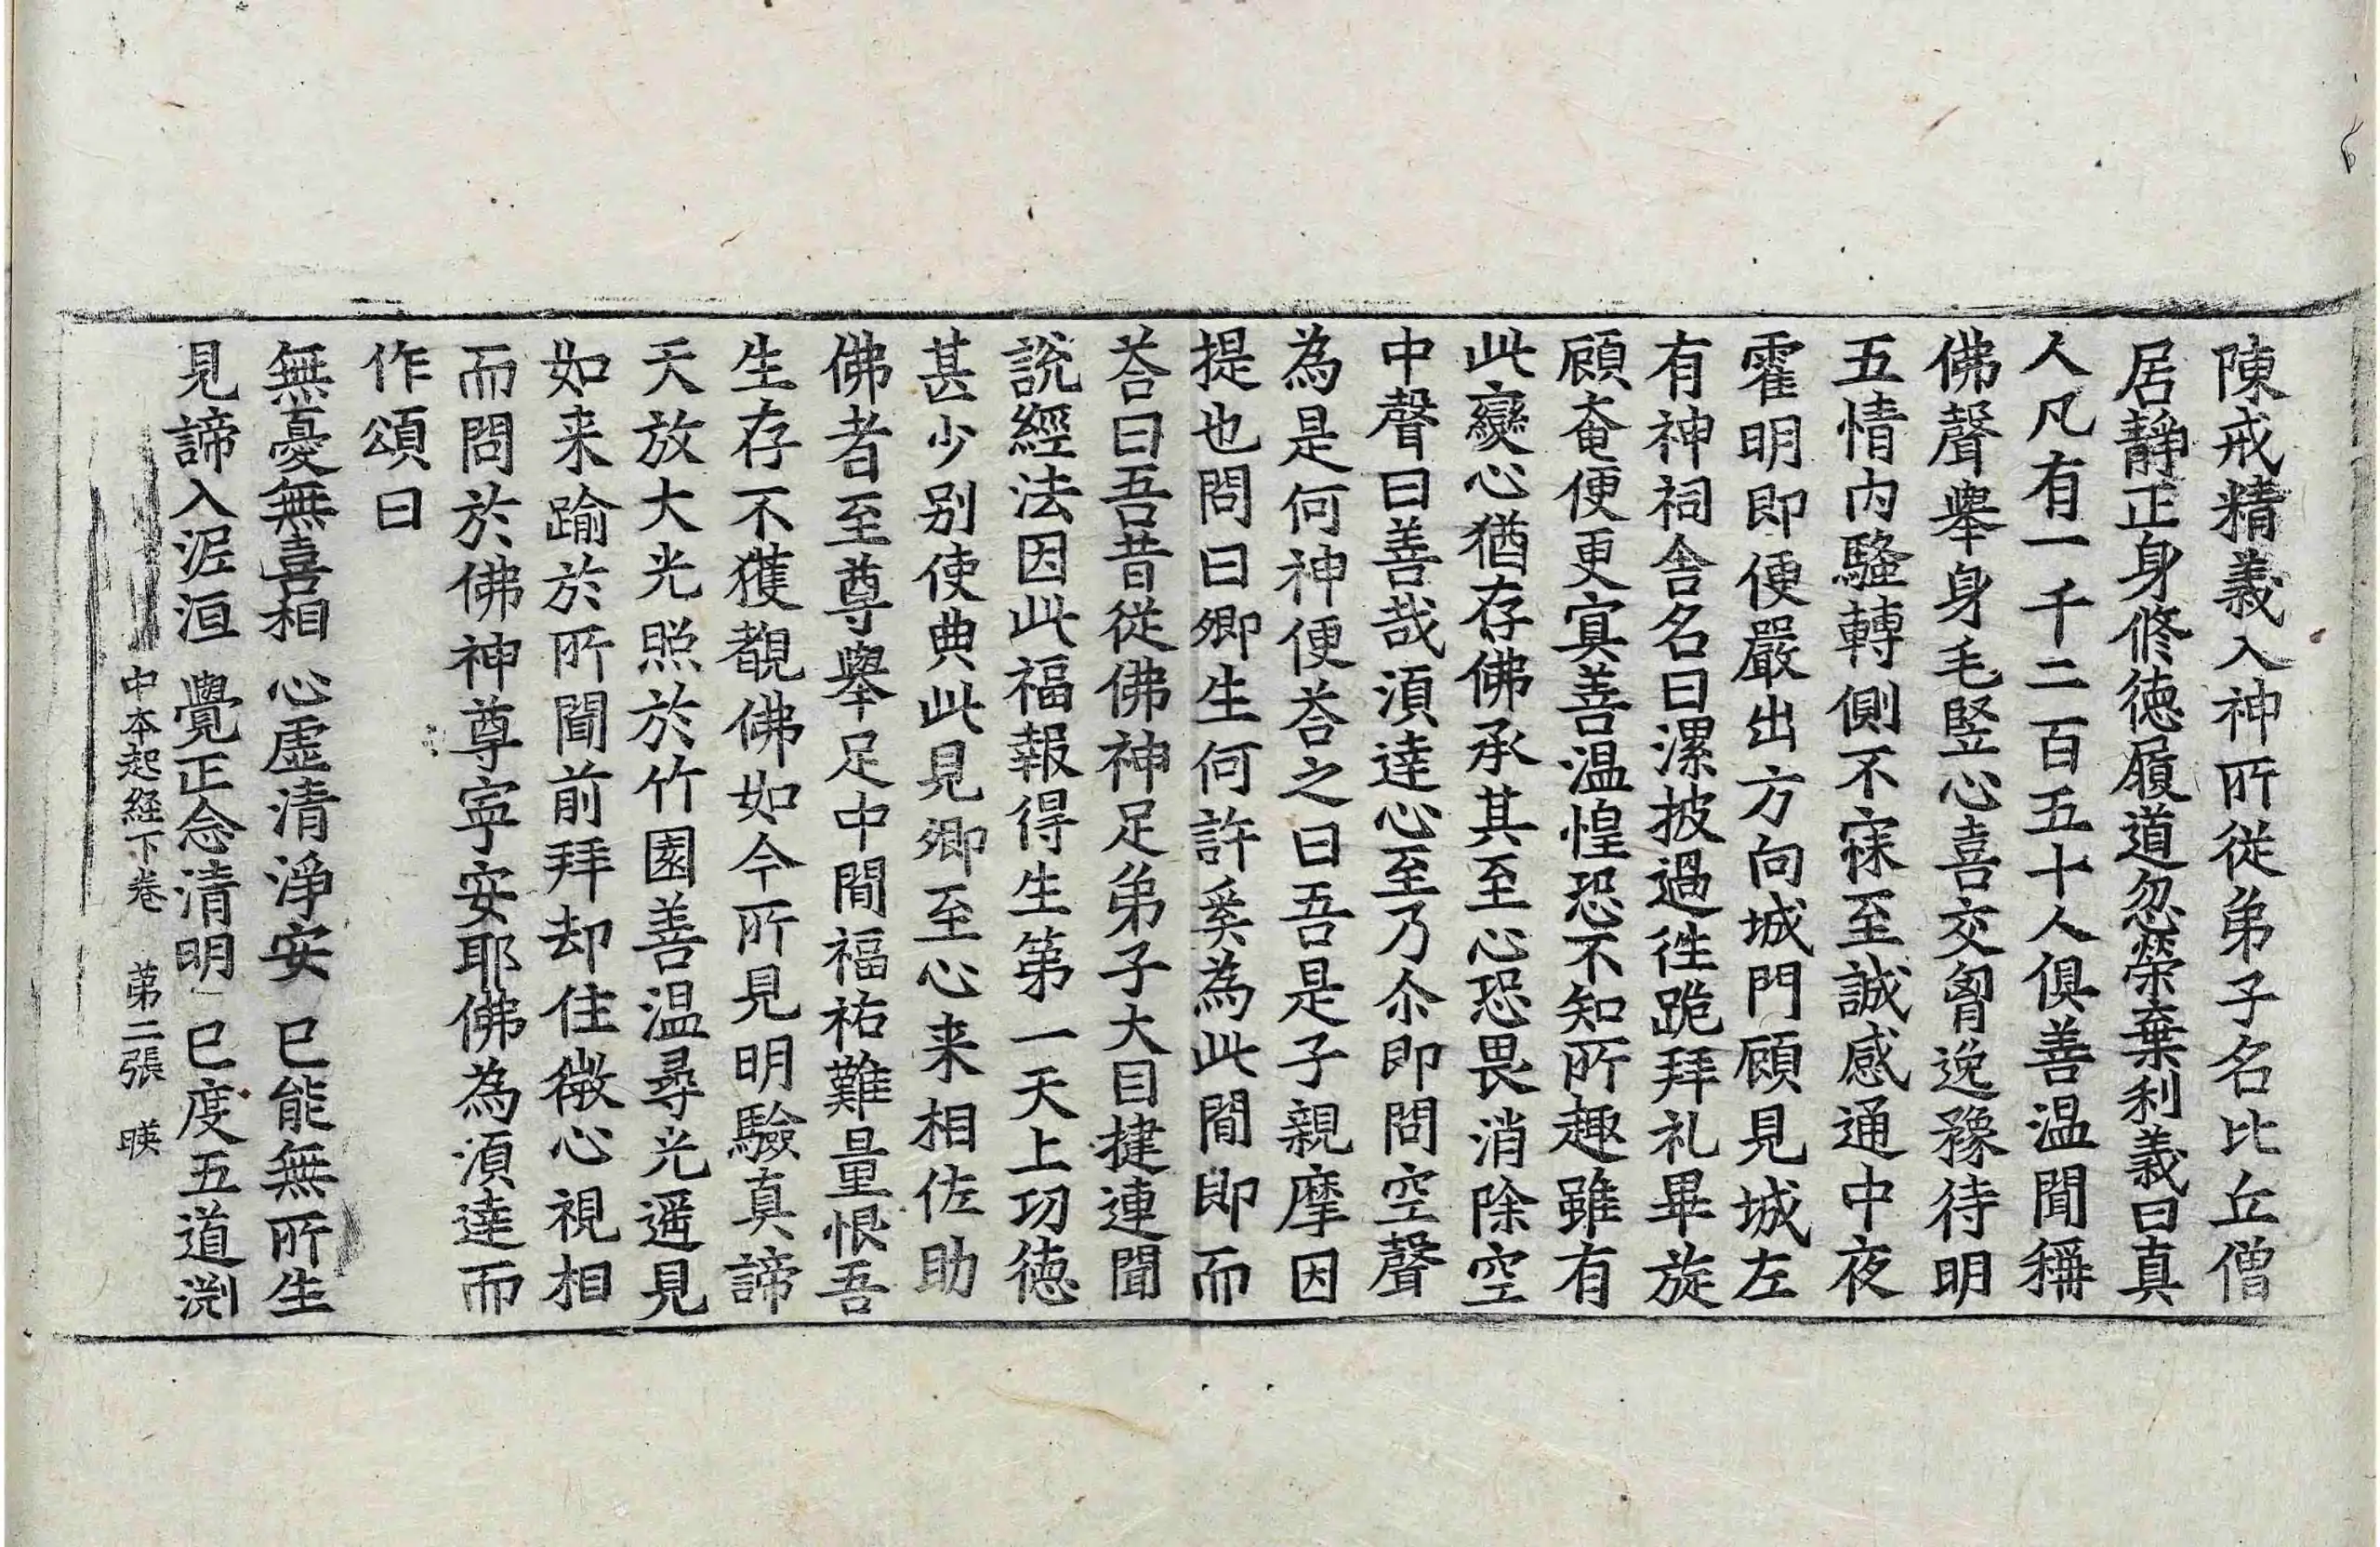 陳戒精義入神所從弟子名比丘僧
居靜正身修徳履道忽榮棄利義曰真
人凡有一千二百五十人俱善温聞稱
佛聲舉身毛竪心喜交胷逸豫待明
五情内騷轉側不寐至誠感通中夜
霍明即便嚴出方向城門顧見城左
有神祠舎名曰漯披過徃跪拜礼畢旋
顧奄便更冥善温惶恐不知所趣雖有
此變心猶存佛承其至心恐畏消除空
中聲曰善哉湏逹心至乃尒即問空聲
為是何神便荅之曰吾是子親摩因
提也問曰卿生何許奚為此間即而
荅曰吾昔從佛神足弟子大目揵連聞
說經法因此福報得生第一天上功徳
甚少别使典此見卿至心来相佐助
佛者至尊舉足中間福祐難量恨吾
生存不獲覩佛如今所見明驗真諦
天放大光照於竹園善温尋光遥見
如来踰於所聞前拜却住微心視相
而問於佛神尊寜安耶佛為湏逹而
作頌曰
無憂無喜相 心虚清淨安 已能無所生
見諦入泥洹 覺正念清明 已度五道渕
中本起経下卷 第二張 暎